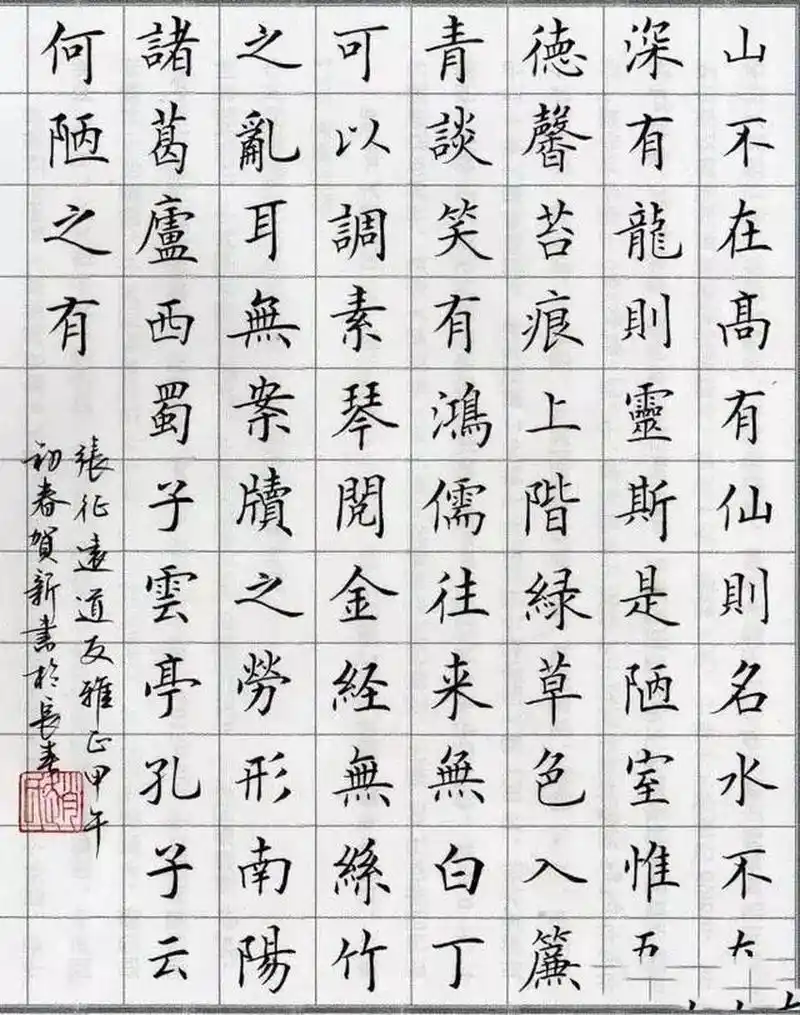 山不在髙有仙則名水不
深有龍則靈斯是陋室惟
德馨苔痕上階緑草色入簾
青談笑有鴻儒往来無白丁
可以調素琴閱金経無絲竹
之亂耳無案牘之勞形南陽
諸葛廬西蜀子雲亭孔子云
何陋之有
張征遠道友雅正甲午
初春賀新書於長春